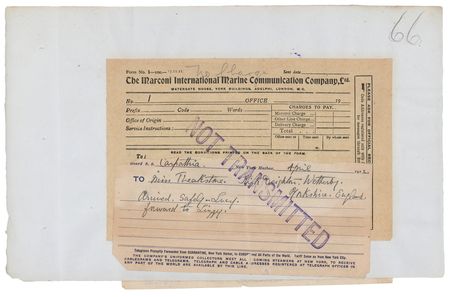 66.
Form No. 1—100.— Sent date
No Charge
The Marconi International Marine Communication Company, Ltd.
WATERGATE HOUSE, YORK BUILDINGS, ADELPHI, LONDON, W.C.
No 1 OFFICE 19
Prefix Code Words
Office of Origin
Service Instructions:
CHARGES TO PAY.
Marconi Charge
Other Line Charge
Delivery Charge
Total
Office sent to Time sent By whom sent
READ THE CONDITIONS PRINTED ON THE BACK OF THE FORM.
NOT TRANSMITTED
To:
Carpathia New York Harbor, April 191
TO Miss Theakstone. Wetherby.
Yorkshire. England
Arrived Safely. Lucy.
forward to
Telegrams Promptly Forwarded from QUARANTINE, New York Harbor, to EUROPE and All Parts of the World. Tariff Same as from New York City.
THE COMPANY'S UNIFORMED COLLECTORS MEET ALL INCOMING STEAMERS AT NEW YORK, TO RECEIVE
CABLEGRAMS AND TELEGRAMS. TELEGRAPH AND CABLE ADDRESSES REGISTERED AT TELEGRAPH OFFICES IN
ANY PART OF THE WORLD ARE AVAILABLE BY THIS LINE.